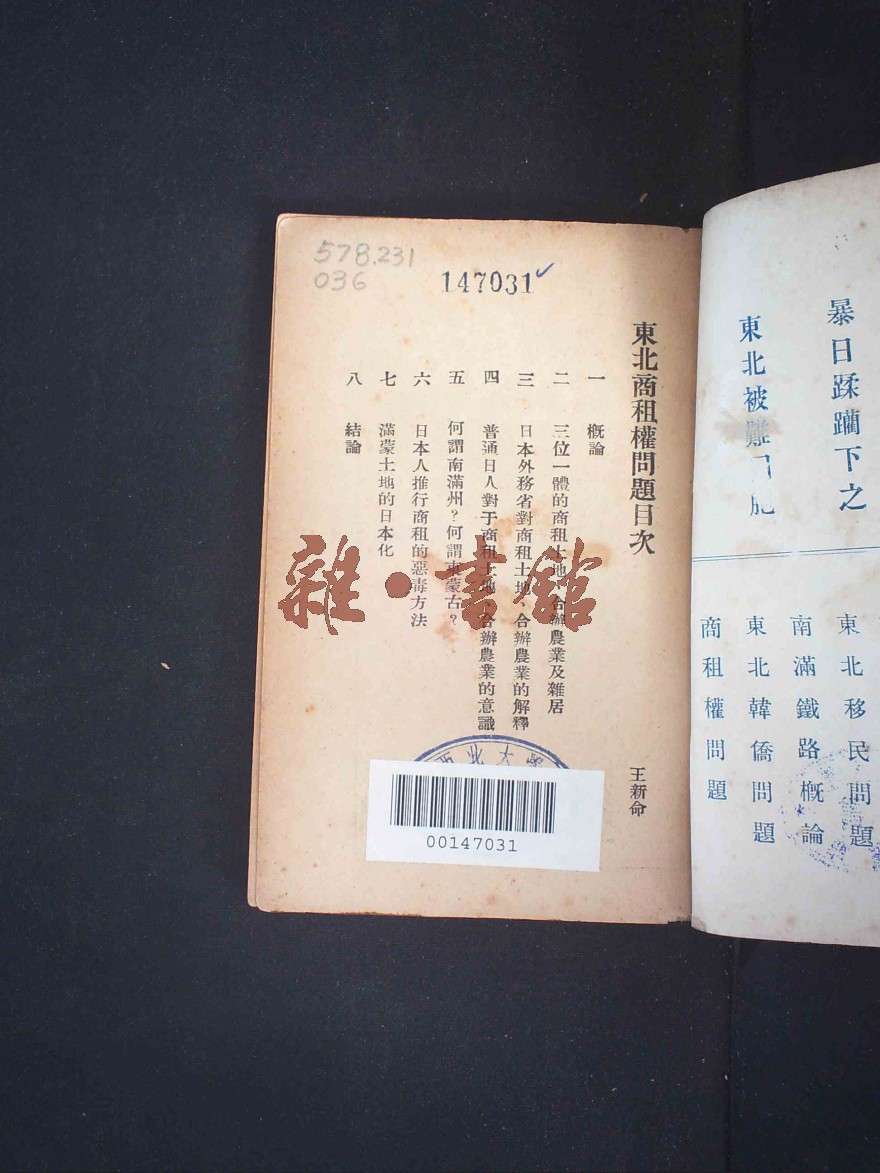 暴日蹂躪下之
東北被難
東北移民問題
南滿鐵路概論
東北韓僑問題
商租權問題
578.231
036
147031
東北商租權問題目次
王新命
一 概論
二 三位一體的商租土地、合辦農業及雜居
三 日本外務省對商租土地、合辦農業的解釋
四 普通日人對于商租土地、合辦農業的意識
五 何謂南滿州？何謂東蒙古？
六 日本人推行商租的惡毒方法
七 滿蒙土地的日本化
八 結論
雜·書館
西北大學
00147031